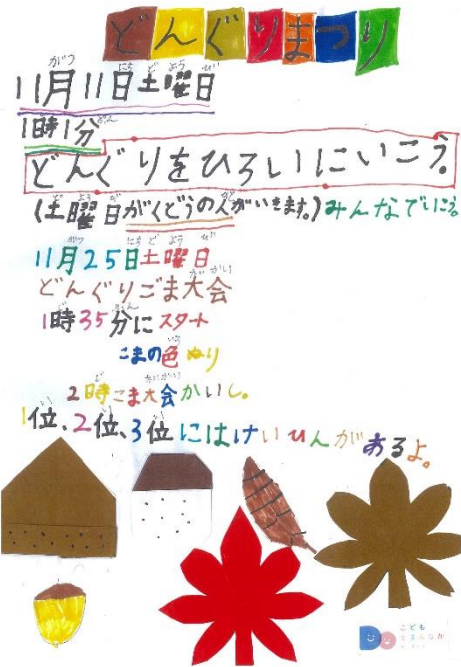 どんぐりまつり
11月11日土曜日
1時1分
どんぐりをひろいにいこう。
(土曜日がくどうの人がいきます。)みんなでいこう。
11月25日土曜日
どんぐりごま大会
1時35分にスタート
こまの色ぬり
2時こま大会かいし。
1位、2位、3位にはけいひんがあるよ。
こども